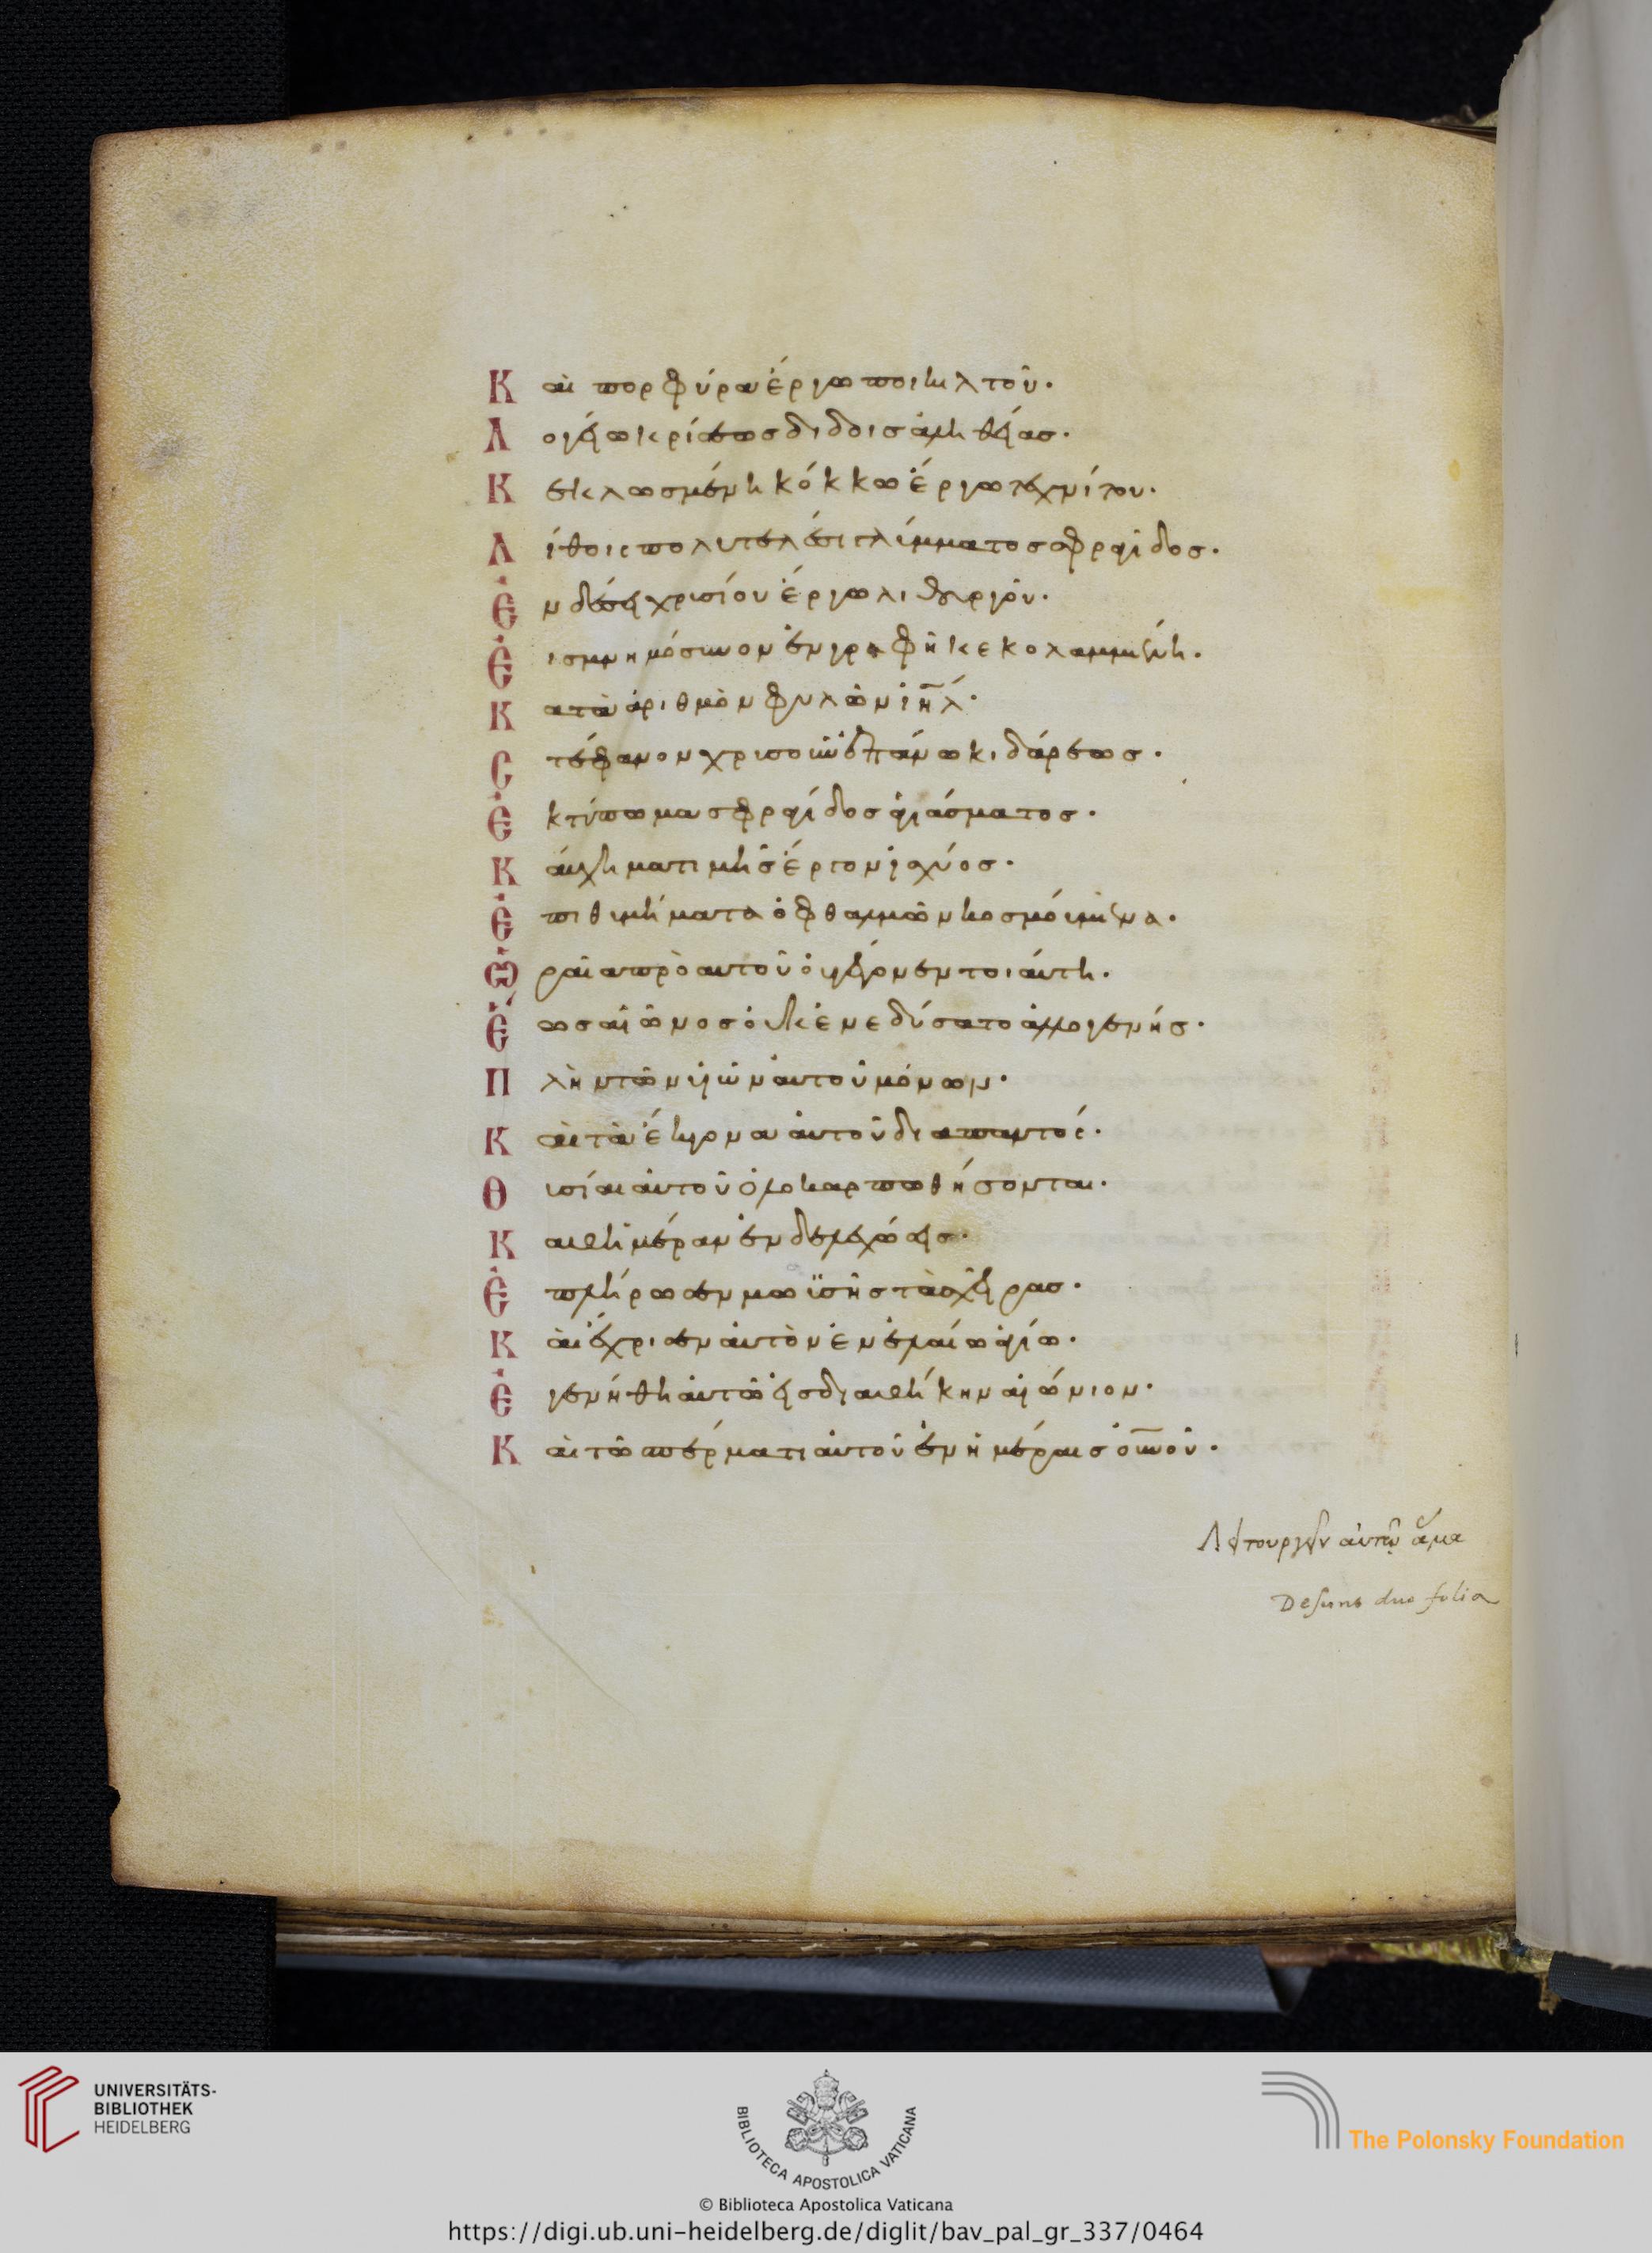 Και πορφύρα έργω ποικιλτοῦ·
Λογείω κρίσεως δίδοις ἀληθείας·
Κεκλωσμένη κόκκω ἔργω τεχνίτου·
Λίθοις πολυτελέσι γλίμματος σφραγίδος·
Ἐν δέσει χρισίου ἔργω λιθουργοῦ·
Εἰς μνημόσυνον ἐν γραφῆ κεκολαμμένη·
Κατὰ ἀριθμὸν φυλῶν ἰηλ·
Στέφανον χρισοῦν ἐπάνω κιδάρεως·
Ἐκτύπωμα σφραγίδος ἁγιάσματος·
Καύχημα τιμῆς ἔργον ἰσχύος·
Ἐπιθυμήματα ὀφθαλμῶν κοσμούμενα·
Ὡραῖα πρὸ αυτοῦ οὐ γέγονεν τοιαύτη·
Ἕως αἰῶνος οὐκ ἐνεδύσατο ἀλλογενής·
Πλὴν τῶν υἱῶν αυτοῦ μόνων·
Καὶ τὰ ἔκγονα αυτοῦ διαπαντός·
Θυσίαι αυτοῦ ὁλοκαρπωθήσονται·
Καθημέραν ἐνδελεχῶς·
Ἐπλήρωσεν μωϊσῆς τὰς χεῖρας·
Καὶ ἔχρισεν αυτὸν ἐν ἐλαίω ἁγίω·
Ἐγενήθη αυτῶ εἰς διαθήκην αἰώνιον·
Καὶ τῶ σπέρματι αυτοῦ ἐν ἡμέραις οὐνοῦ·
Λειτουργεῖν αὐτῷ ἅμα
Desunt duo folia
UNIVERSITÄTS-
BIBLIOTHEK
HEIDELBERG
BIBLIOTECA APOSTOLICA VATICANA
The Polonsky Foundation
© Biblioteca Apostolica Vaticana
https://digi.ub.uni-heidelberg.de/diglit/bav_pal_gr_337/0464